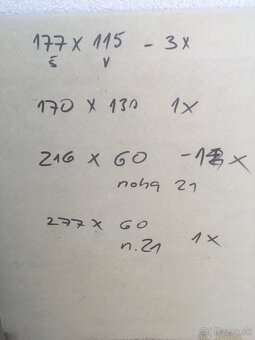 177 x 115 - 3x
š v
170 x 130 1x
216 x 60 - 1x
noha 21
277 x 60
n. 21 1x